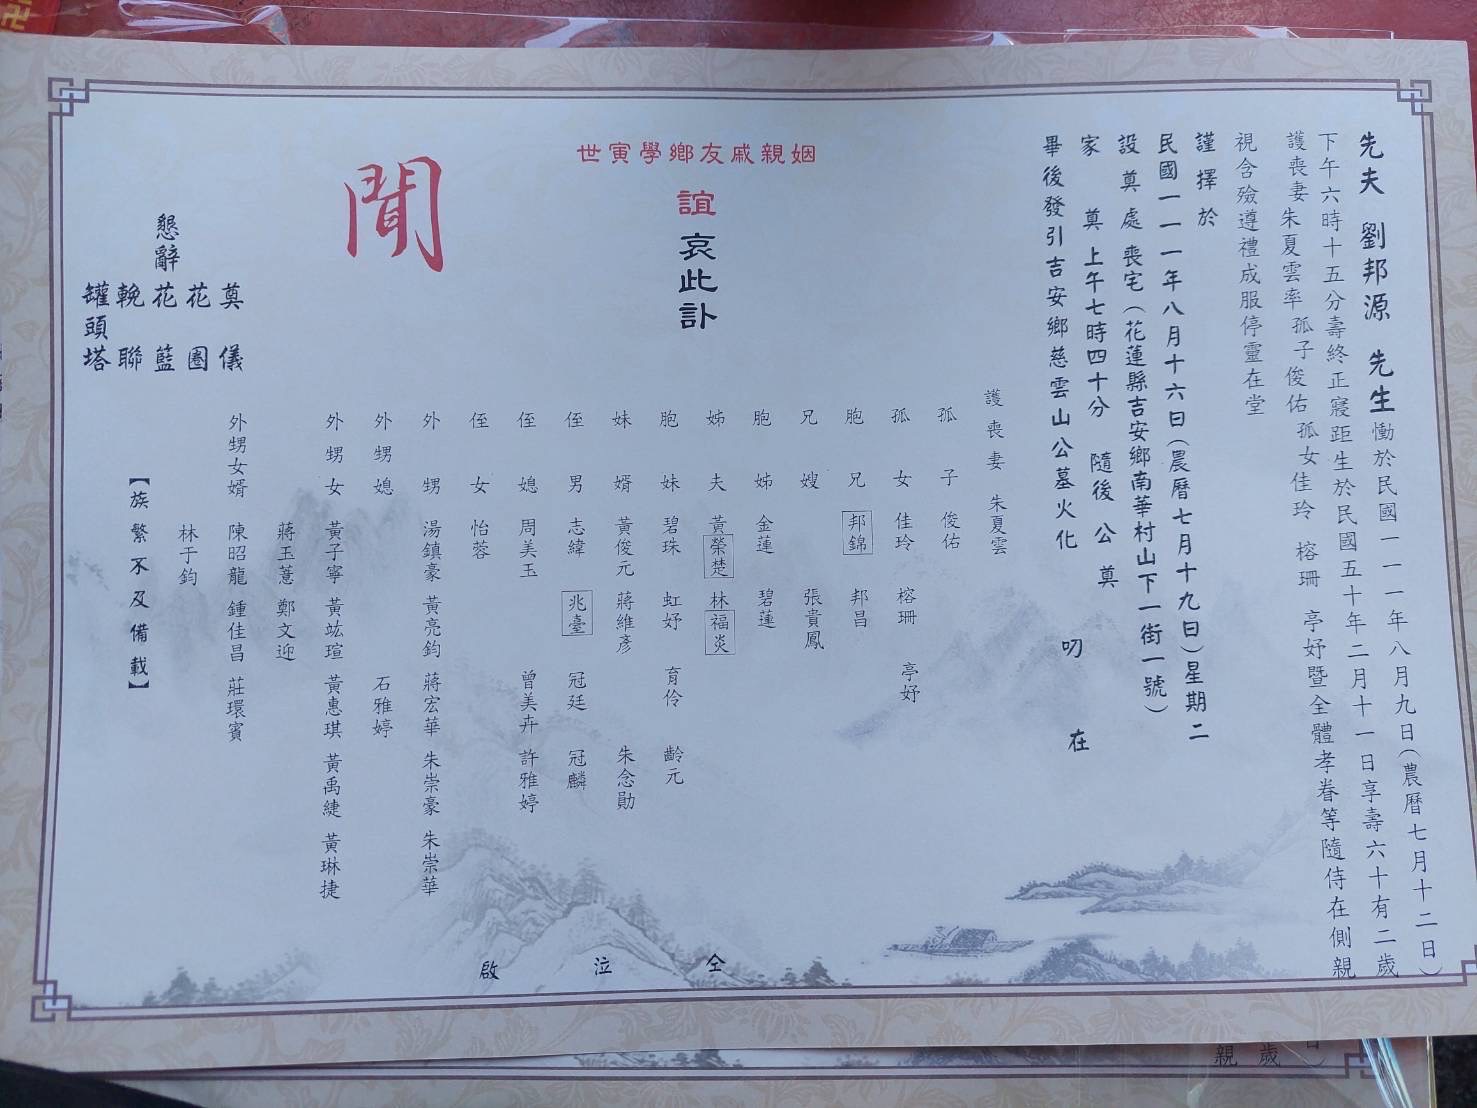 先夫 劉邦源 先生慟於民國一一一年八月九日(農曆七月十二日)
下午六時十五分壽終正寢距生於民國五十年二月十一日享壽六十有二歲
護喪妻朱夏雲率孤子俊佑孤女佳玲 榕珊 亭妤暨全體孝眷等隨侍在側親
視含殮遵禮成服停靈在堂
謹擇於
民國一一一年八月十六日(農曆七月十九日)星期二
設奠處喪宅(花蓮縣吉安鄉南華村山下一街一號)
家 奠上午七時四十分 隨後公奠
畢後發引吉安鄉慈雲山公墓火化 叨 在
姻親戚友鄉學寅世
誼哀此訃
聞
護喪妻 朱夏雲
孤子 俊佑
孤女 佳玲 榕珊 亭妤
胞兄 邦錦 邦昌
兄嫂 張貴鳳
胞姊 金蓮 碧蓮
姊夫 黃榮楚 林福炎
胞妹 碧珠 虹妤 育伶 齡元
妹婿 黃俊元 蔣維彥 朱念勛
侄男 志緯 兆臺 冠廷 冠麟
侄媳 周美玉 曾美卉 許雅婷
侄女 怡蓉
外甥 湯鎮豪 黃亮鈞 蔣宏華 朱崇豪 朱崇華
外甥媳 石雅婷
外甥女 黃子寧 黃竑瑄 黃惠琪 黃禹緁 黃琳捷
蔣玉薏 鄭文迎
外甥女婿 陳昭龍 鍾佳昌 莊環賓
林于鈞
仝泣啟
【族繁不及備載】
懇辭
奠儀
花圈
花藍
輓聯
罐頭塔
日)
歲
親